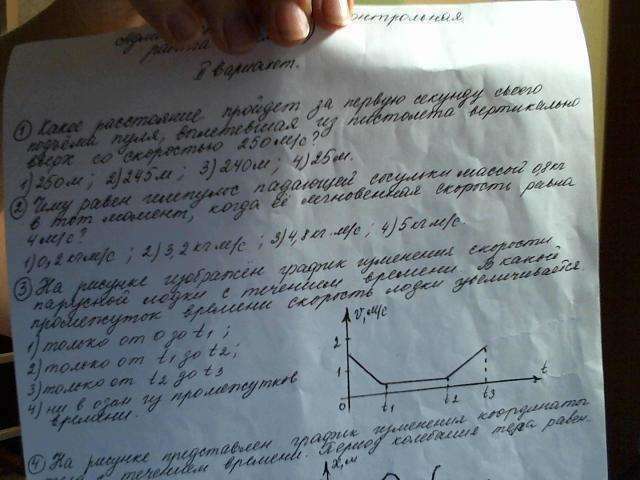 контрольная
работа
II вариант.
① Какое расстояние пройдёт за первую секунду своего
подъёма пуля, вылетевшая из пистолета вертикально
вверх со скоростью 250 м/с?
1) 250 м; 2) 245 м; 3) 240 м; 4) 25 м.
② Чему равен импульс падающей сосульки массой 0,8 кг
в тот момент, когда её мгновенная скорость равна
4 м/с?
1) 0,2 кг м/с; 2) 3,2 кг м/с; 3) 4,8 кг м/с; 4) 5 кг м/с.
③ На рисунке изображён график изменения скорости
парусной лодки с течением времени. В какой
промежуток времени скорость лодки увеличивается
1) только от 0 до t1;
2) только от t1 до t2;
3) только от t2 до t3
4) ни в один из промежутков
времени.
V, м/с
2
1
0
t1
t2
t3
t
④ На рисунке представлен график изменения координаты
тела с течением времени. Период колебания тела равен.
x, м